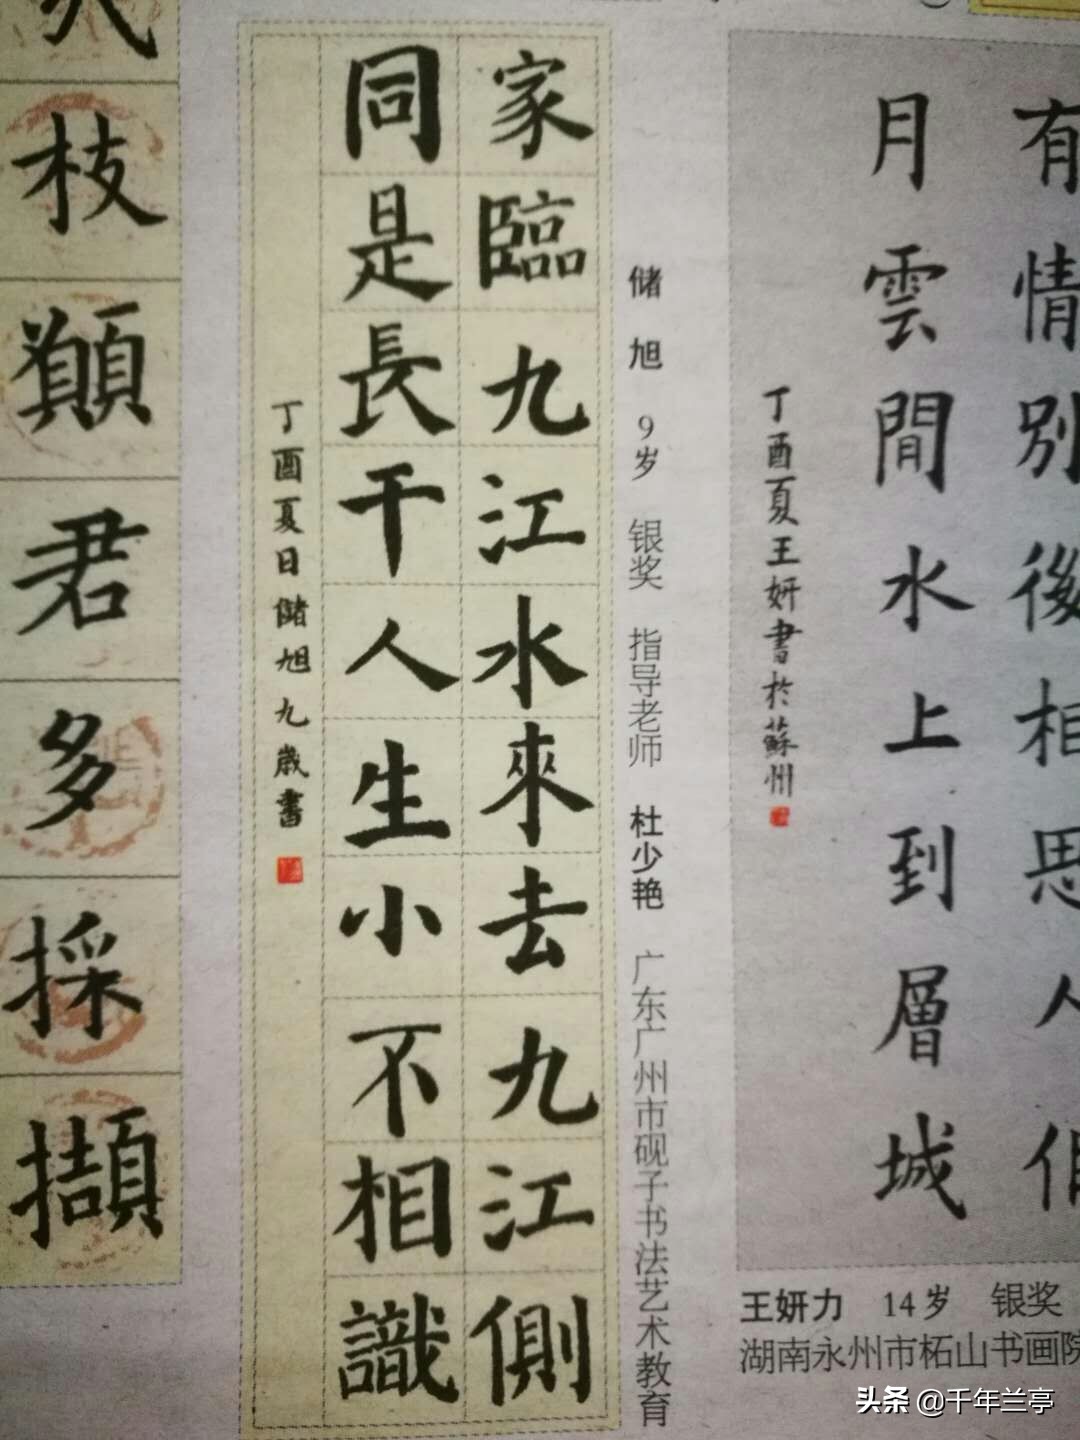 有情別後相思人
月雲間水上到層城
丁酉夏王妍書於蘇州
王妍力 14岁 银奖
湖南永州市柘山书画院
储旭 9岁 银奖 指导老师 杜少艳 广东广州市砚子书法艺术教育
家臨九江水來去九江側
同是長干人生小不相識
丁酉夏日儲旭九歲書
枝願君多採擷
头条 @千年兰亭